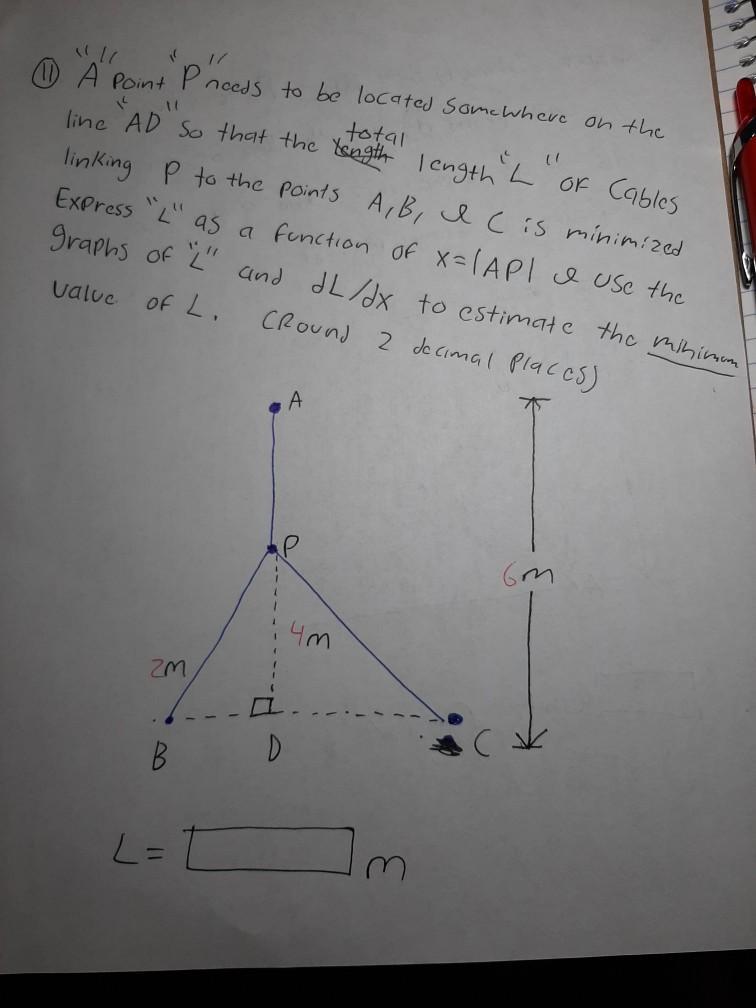 ⑪ "A" Point "P" needs to be located somewhere on the
line "AD" so that the total length "L" of Cables
linking P to the points A, B, & C is minimized
Express "L" as a function of x=|AP| & use the
graphs of "L" and dL/dx to estimate the minimum
value of L. (Round 2 decimal Places)
A
P
6m
4m
2m
B D C
L= m